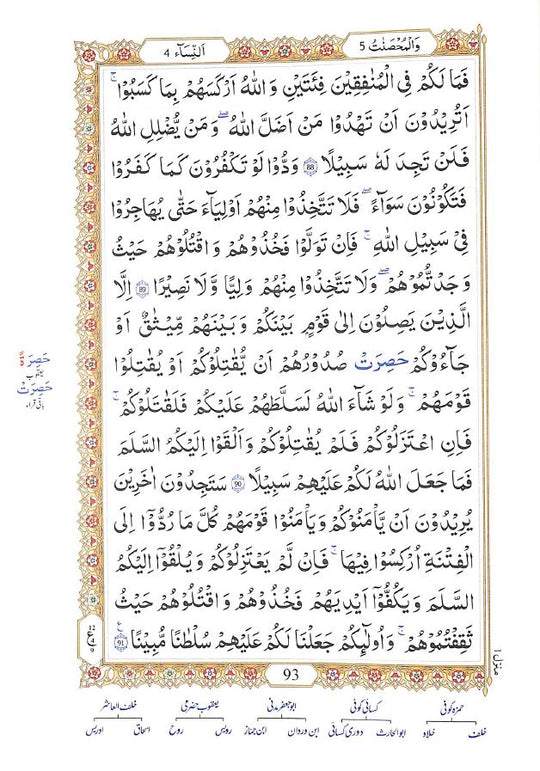 وَالْمُحْصَنٰتُ 5
اَلنِّسَآء 4
فَمَا لَكُمْ فِي الْمُنٰفِقِيْنَ فِئَتَيْنِ وَ اللّٰهُ اَرْكَسَهُمْ بِمَا كَسَبُوْا ۚ
اَتُرِيْدُوْنَ اَنْ تَهْدُوْا مَنْ اَضَلَّ اللّٰهُ ۖ وَ مَنْ يُّضْلِلِ اللّٰهُ
فَلَنْ تَجِدَ لَهٗ سَبِيْلًا 88 وَدُّوْا لَوْ تَكْفُرُوْنَ كَمَا كَفَرُوْا
فَتَكُوْنُوْنَ سَوَآءً ۖ فَلَا تَتَّخِذُوْا مِنْهُمْ اَوْلِيَآءَ حَتّٰى يُهَاجِرُوْا
فِيْ سَبِيْلِ اللّٰهِ ۚ فَاِنْ تَوَلَّوْا فَخُذُوْهُمْ وَ اقْتُلُوْهُمْ حَيْثُ
وَجَدْتُّمُوْهُمْ ۖ وَلَا تَتَّخِذُوْا مِنْهُمْ وَلِيًّا وَّلَا نَصِيْرًا 89 اِلَّا
الَّذِيْنَ يَصِلُوْنَ اِلٰى قَوْمٍ بَيْنَكُمْ وَ بَيْنَهُمْ مِّيْثٰقٌ اَوْ
جَآءُوْكُمْ حَصِرَتْ صُدُوْرُهُمْ اَنْ يُّقٰتِلُوْكُمْ اَوْ يُقٰتِلُوْا
قَوْمَهُمْ ۚ وَلَوْ شَآءَ اللّٰهُ لَسَلَّطَهُمْ عَلَيْكُمْ فَلَقٰتَلُوْكُمْ ۚ
فَاِنِ اعْتَزَلُوْكُمْ فَلَمْ يُقٰتِلُوْكُمْ وَ اَلْقَوْا اِلَيْكُمُ السَّلَمَ
فَمَا جَعَلَ اللّٰهُ لَكُمْ عَلَيْهِمْ سَبِيْلًا 90 سَتَجِدُوْنَ اٰخَرِيْنَ
يُرِيْدُوْنَ اَنْ يَّاْمَنُوْكُمْ وَ يَاْمَنُوْا قَوْمَهُمْ كُلَّ مَا رُدُّوْٓا اِلَى
الْفِتْنَةِ اُرْكِسُوْا فِيْهَا ۚ فَاِنْ لَّمْ يَعْتَزِلُوْكُمْ وَ يُلْقُوْٓا اِلَيْكُمُ
السَّلَمَ وَ يَكُفُّوْٓا اَيْدِيَهُمْ فَخُذُوْهُمْ وَ اقْتُلُوْهُمْ حَيْثُ
ثَقِفْتُمُوْهُمْ ۚ وَ اُولٰٓئِكُمْ جَعَلْنَا لَكُمْ عَلَيْهِمْ سُلْطٰنًا مُّبِيْنًا 91
حَصِرَةً
يعقوب
حَصِرَتْ
باقی قراء
ع
منزل ۱
93
حمزہ کوفی کسائی کوفی ابو جعفر مدنی یعقوب حضرمی خلف العاشر
خلف خلاد ابوالحارث دوری کسائی ابن وردان ابن جماز رویس روح اسحاق ادریس